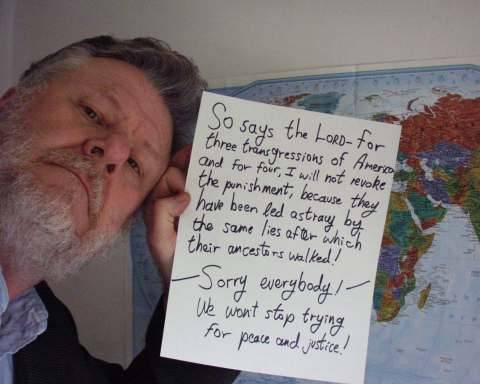 So says the LORD- for
three transgressions of America
and for four, I will not revoke
the punishment, because they
have been led astray by
the same lies after which
their ancestors walked!
— Sorry everybody! —
We won't stop trying
for peace and justice!